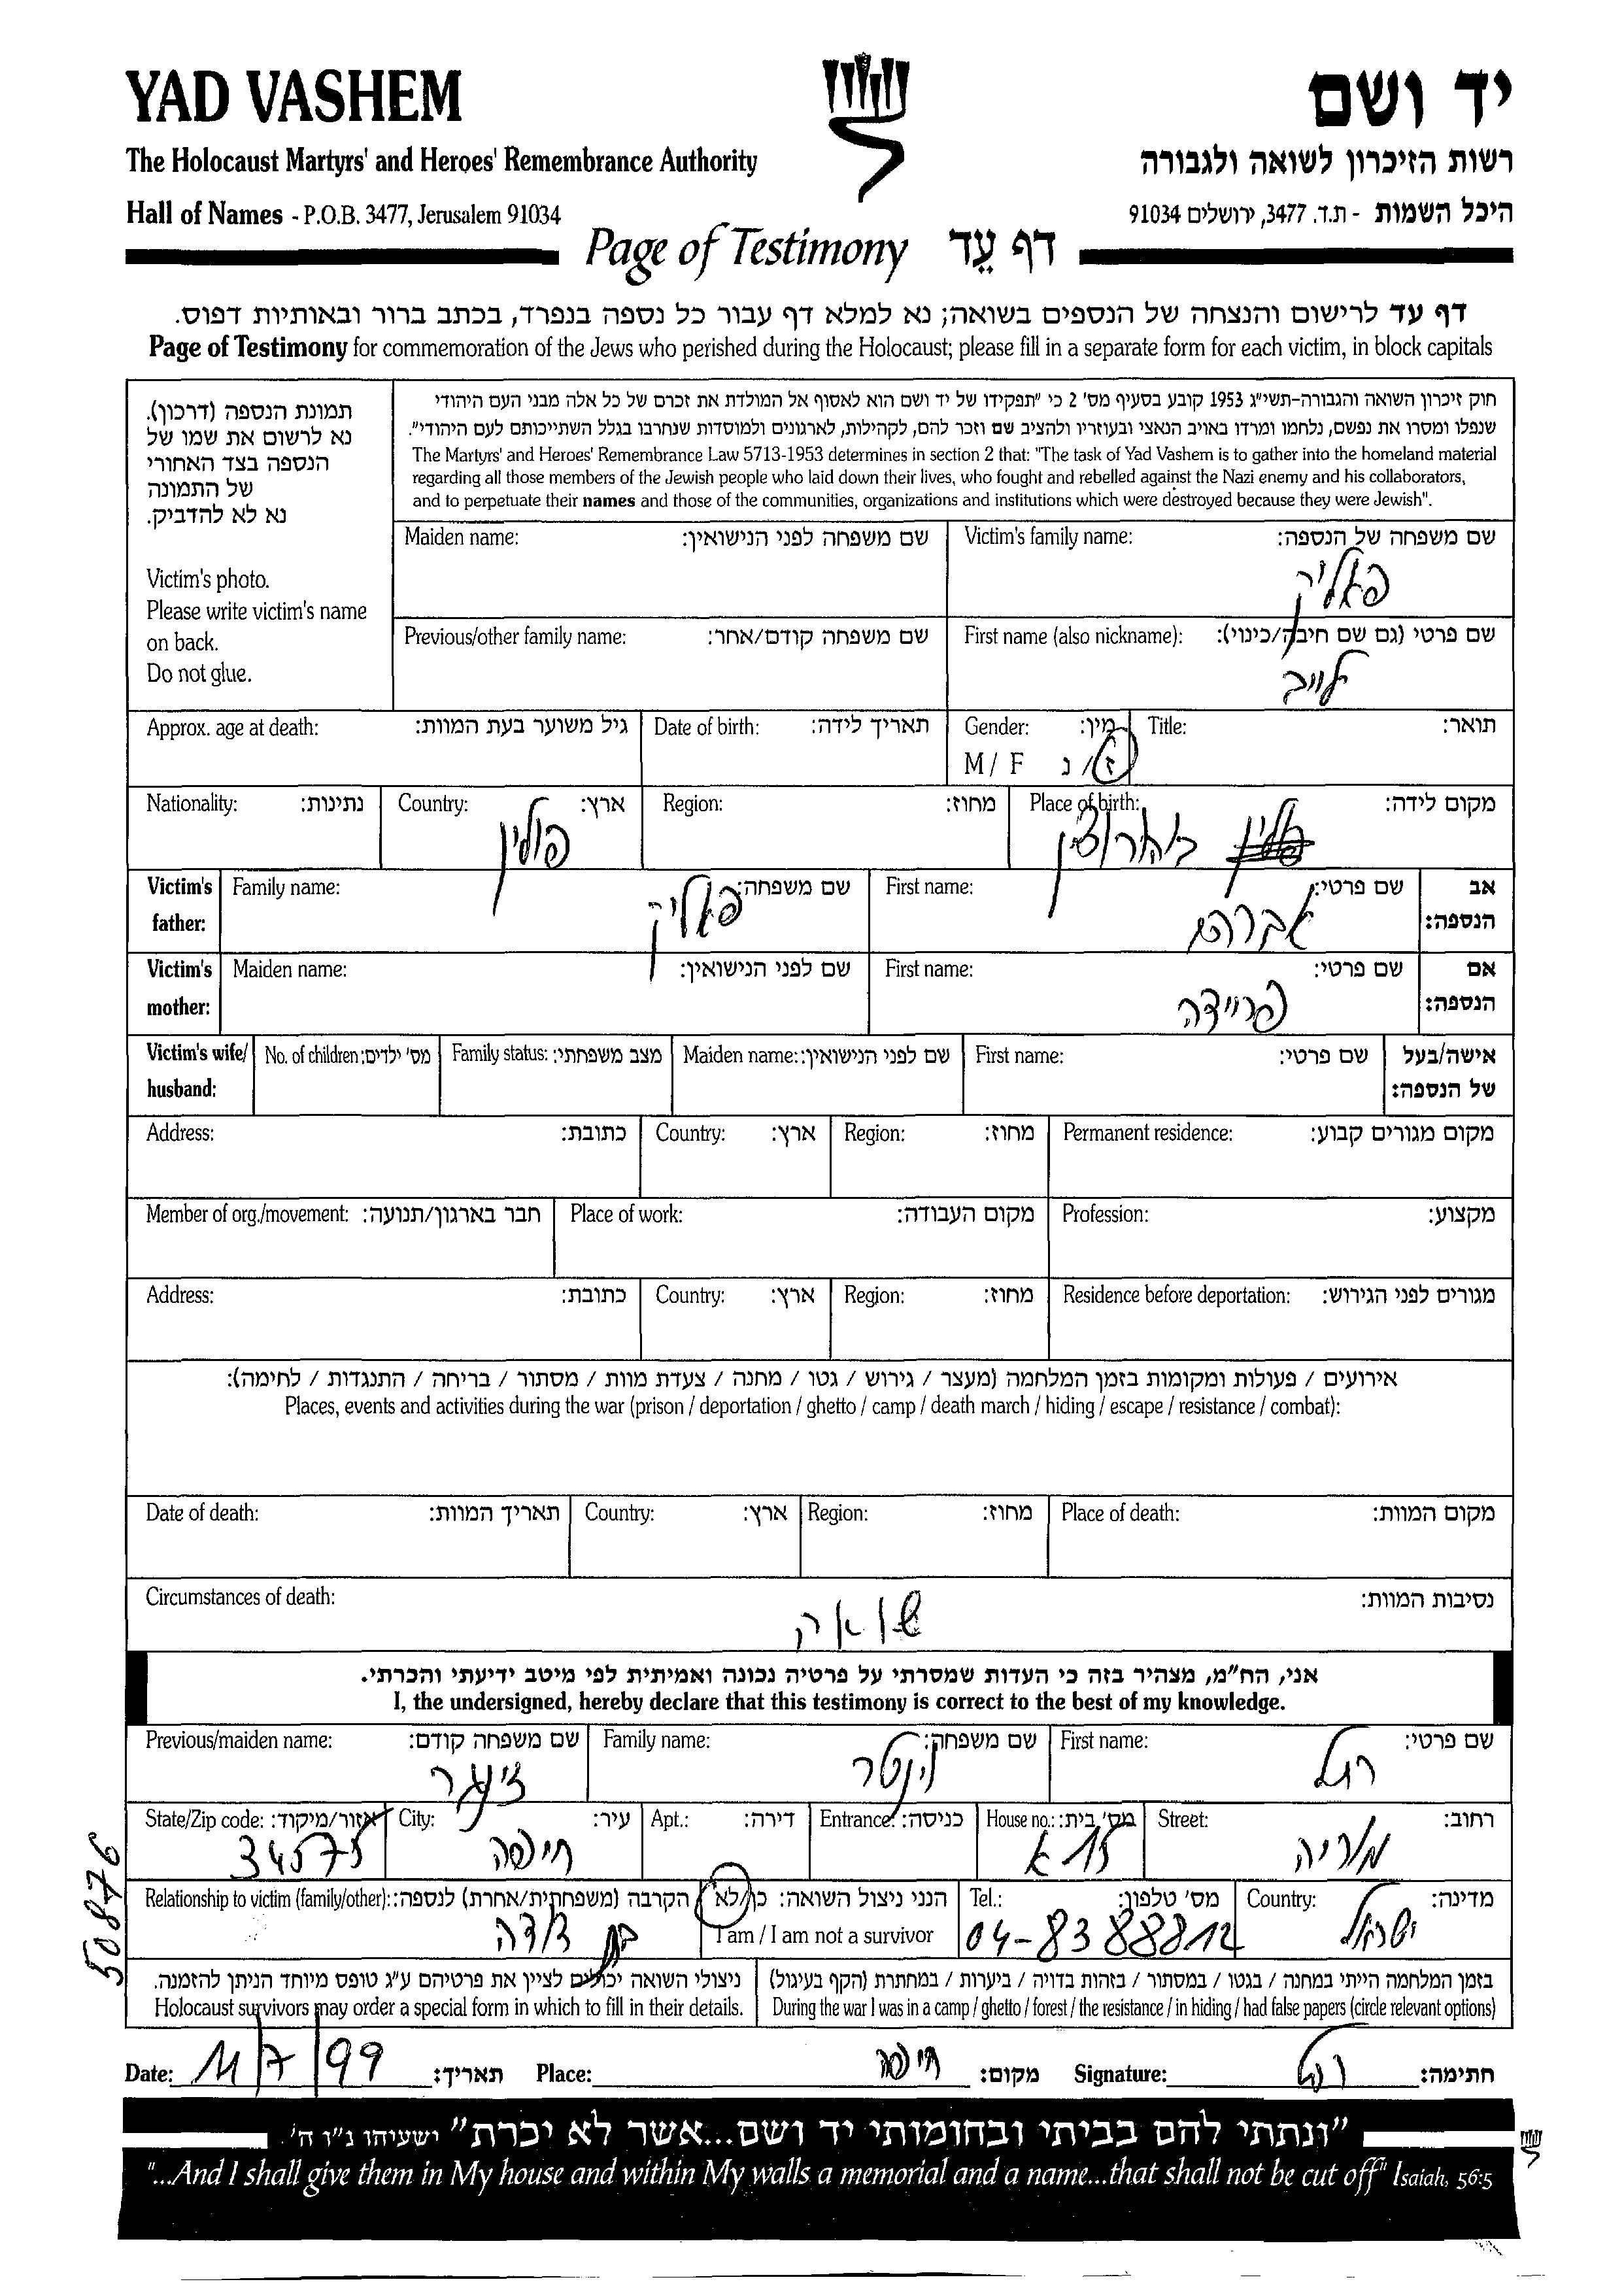 YAD VASHEM
יד ושם
The Holocaust Martyrs' and Heroes' Remembrance Authority
רשות הזיכרון לשואה ולגבורה
Hall of Names - P.O.B. 3477, Jerusalem 91034
היכל השמות - ת.ד. 3477, ירושלים 91034
Page of Testimony דף עֵד
דף עד לרישום והנצחה של הנספים בשואה; נא למלא דף עבור כל נספה בנפרד, בכתב ברור ובאותיות דפוס.
Page of Testimony for commemoration of the Jews who perished during the Holocaust; please fill in a separate form for each victim, in block capitals
תמונת הנספה (דרכון).
נא לרשום את שמו של
הנספה בצד האחורי
של התמונה
נא לא להדביק.
Victim's photo.
Please write victim's name
on back.
Do not glue.
חוק זיכרון השואה והגבורה-תשי"ג 1953 קובע בסעיף מס' 2 כי "תפקידו של יד ושם הוא לאסוף אל המולדת את זכרם של כל אלה מבני העם היהודי
שנפלו ומסרו את נפשם, נלחמו ומרדו באויב הנאצי ובעוזריו ולהציב שם וזכר להם, לקהילות, לארגונים ולמוסדות שנחרבו בגלל השתייכותם לעם היהודי".
The Martyrs' and Heroes' Remembrance Law 5713-1953 determines in section 2 that: "The task of Yad Vashem is to gather into the homeland material
regarding all those members of the Jewish people who laid down their lives, who fought and rebelled against the Nazi enemy and his collaborators,
and to perpetuate their names and those of the communities, organizations and institutions which were destroyed because they were Jewish".
Victim's family name: שם משפחה של הנספה:
פאליק
Maiden name: שם משפחה לפני הנישואין:
First name (also nickname): שם פרטי (גם שם חיבה/כינוי):
לייב
Previous/other family name: שם משפחה קודם/אחר:
Title: תואר:
Gender: מין:
M / F ז / נ
Date of birth: תאריך לידה:
Approx. age at death: גיל משוער בעת המוות:
Place of birth: מקום לידה:
Region: מחוז:
Country: ארץ:
פולין
Nationality: נתינות:
Victim's father: אב הנספה:
First name: שם פרטי:
אברהם
Family name: שם משפחה:
פאליק
Victim's mother: אם הנספה:
First name: שם פרטי:
פריידה
Maiden name: שם לפני הנישואין:
Victim's wife/husband: אישה/בעל של הנספה:
First name: שם פרטי:
Maiden name: שם לפני הנישואין:
Family status: מצב משפחתי:
No. of children: מס' ילדים:
Permanent residence: מקום מגורים קבוע:
Region: מחוז:
Country: ארץ:
Address: כתובת:
Profession: מקצוע:
Place of work: מקום העבודה:
Member of org./movement: חבר בארגון/תנועה:
Residence before deportation: מגורים לפני הגירוש:
Region: מחוז:
Country: ארץ:
Address: כתובת:
אירועים / פעולות ומקומות בזמן המלחמה (מעצר / גירוש / גטו / מחנה / צעדת מוות / מסתור / בריחה / התנגדות / לחימה):
Places, events and activities during the war (prison / deportation / ghetto / camp / death march / hiding / escape / resistance / combat):
Place of death: מקום המוות:
Region: מחוז:
Country: ארץ:
Date of death: תאריך המוות:
Circumstances of death: נסיבות המוות:
שואה
אני, הח"מ, מצהיר בזה כי העדות שמסרתי על פרטיה נכונה ואמיתית לפי מיטב ידיעתי והכרתי.
I, the undersigned, hereby declare that this testimony is correct to the best of my knowledge.
First name: שם פרטי:
רחל
Family name: שם משפחה:
וינטר
Previous/maiden name: שם משפחה קודם:
Street: רחוב:
מוריה
House no.: מס' בית:
15 א
Entrance: כניסה:
Apt.: דירה:
City: עיר:
חיפה
State/Zip code: אזור/מיקוד:
34575
Country: מדינה:
ישראל
Tel.: מס' טלפון:
04-8388812
הנני ניצול השואה: כן/לא
I am / I am not a survivor
Relationship to victim (family/other): הקרבה (משפחתית/אחרת) לנספה:
בת דודה
50876
בזמן המלחמה הייתי במחנה / בגטו / במסתור / בזהות בדויה / ביערות / במחתרת (הקף בעיגול)
During the war I was in a camp / ghetto / forest / the resistance / in hiding / had false papers (circle relevant options)
ניצולי השואה יכולים לציין את פרטיהם ע"ג טופס מיוחד הניתן להזמנה.
Holocaust survivors may order a special form in which to fill in their details.
Date: 11/7/99 תאריך:
Place: חיפה מקום:
Signature: רחל חתימה:
"ונתתי להם בביתי ובחומותי יד ושם...אשר לא יכרת" ישעיהו נ"ו ה'
"...And I shall give them in My house and within My walls a memorial and a name...that shall not be cut off" Isaiah, 56:5